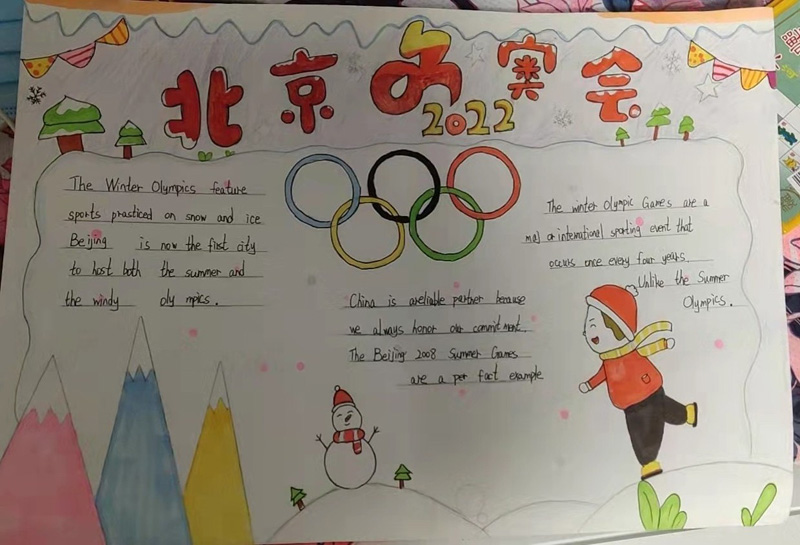 北京冬奥会
2022
The Winter Olympics feature
sports practiced on snow and ice
Beijing is now the first city
to host both the summer and
the windy oly mpics.
China is areliable partner because
we always honor our commit ment.
The Beijing 2008 Summer Games
are a per fact example
The winter Olympic Games are a
maj or international sporting event that
occurs once every four years.
Unlike the Summer
Olympics.